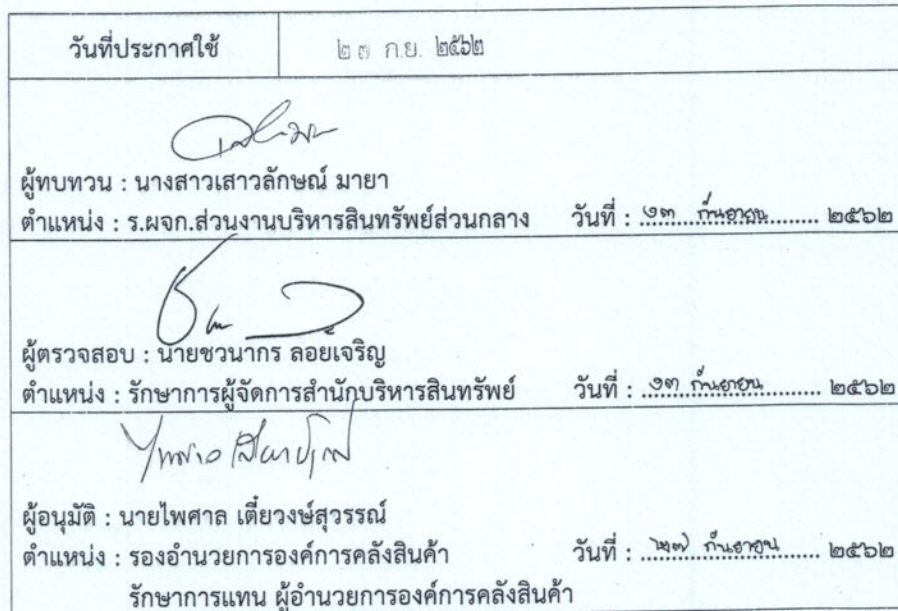 วันที่ประกาศใช้ ๒๗ ก.ย. ๒๕๖๒
ผู้ทบทวน : นางสาวเสาวลักษณ์ มายา
ตำแหน่ง : ร.ผจก.ส่วนงานบริหารสินทรัพย์ส่วนกลาง วันที่ : ๑๓ กันยายน ๒๕๖๒
ผู้ตรวจสอบ : นายชวนากร ลอยเจริญ
ตำแหน่ง : รักษาการผู้จัดการสำนักบริหารสินทรัพย์ วันที่ : ๑๓ กันยายน ๒๕๖๒
ผู้อนุมัติ : นายไพศาล เตี๋ยวงษ์สุวรรณ์
ตำแหน่ง : รองอำนวยการองค์การคลังสินค้า วันที่ : ๒๗ กันยายน ๒๕๖๒
รักษาการแทน ผู้อำนวยการองค์การคลังสินค้า